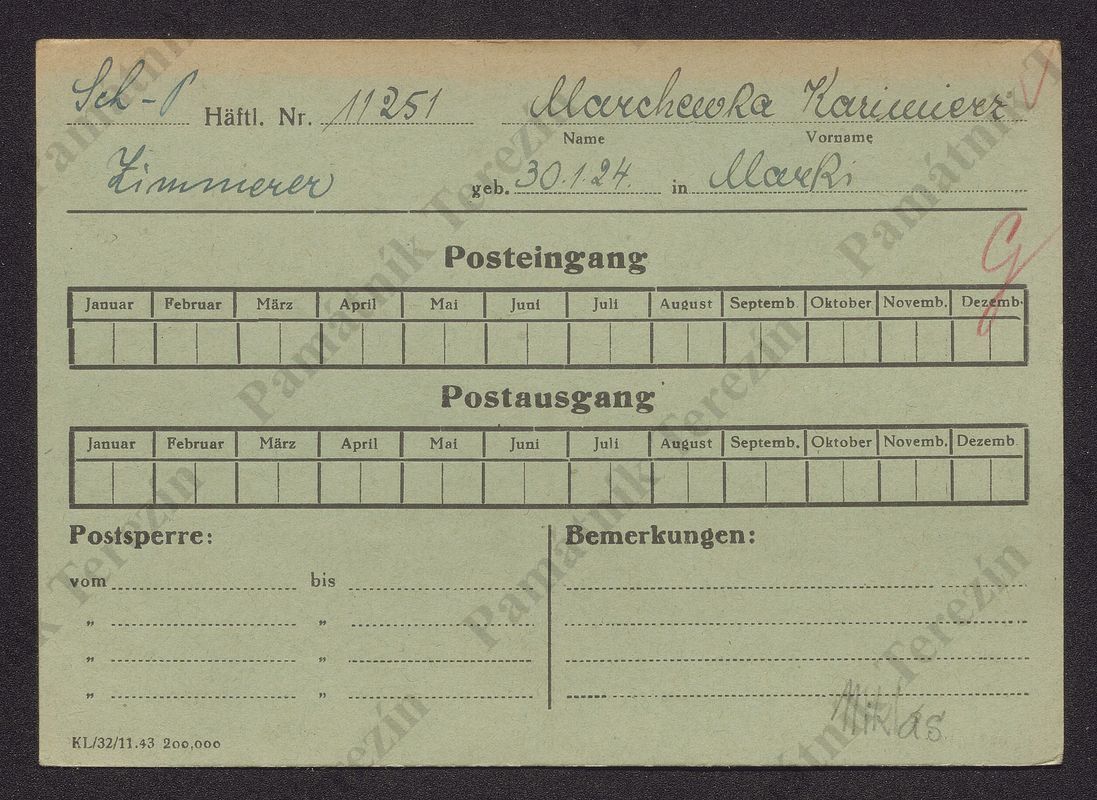 Sch-P Häftl. Nr. 11251 Marchewka Kazimierz
Name Vorname
Zimmerer geb. 30.1.24. in Marki
G
Posteingang
Januar Februar März April Mai Juni Juli August Septemb. Oktober Novemb. Dezemb.
Postausgang
Januar Februar März April Mai Juni Juli August Septemb. Oktober Novemb. Dezemb.
Postsperre: Bemerkungen:
vom bis
" "
" "
" "
Miklas
KL/32/11.43 200,000
Památník Terezín
Památník Terezín
Památník Terezín
Památník Terezín